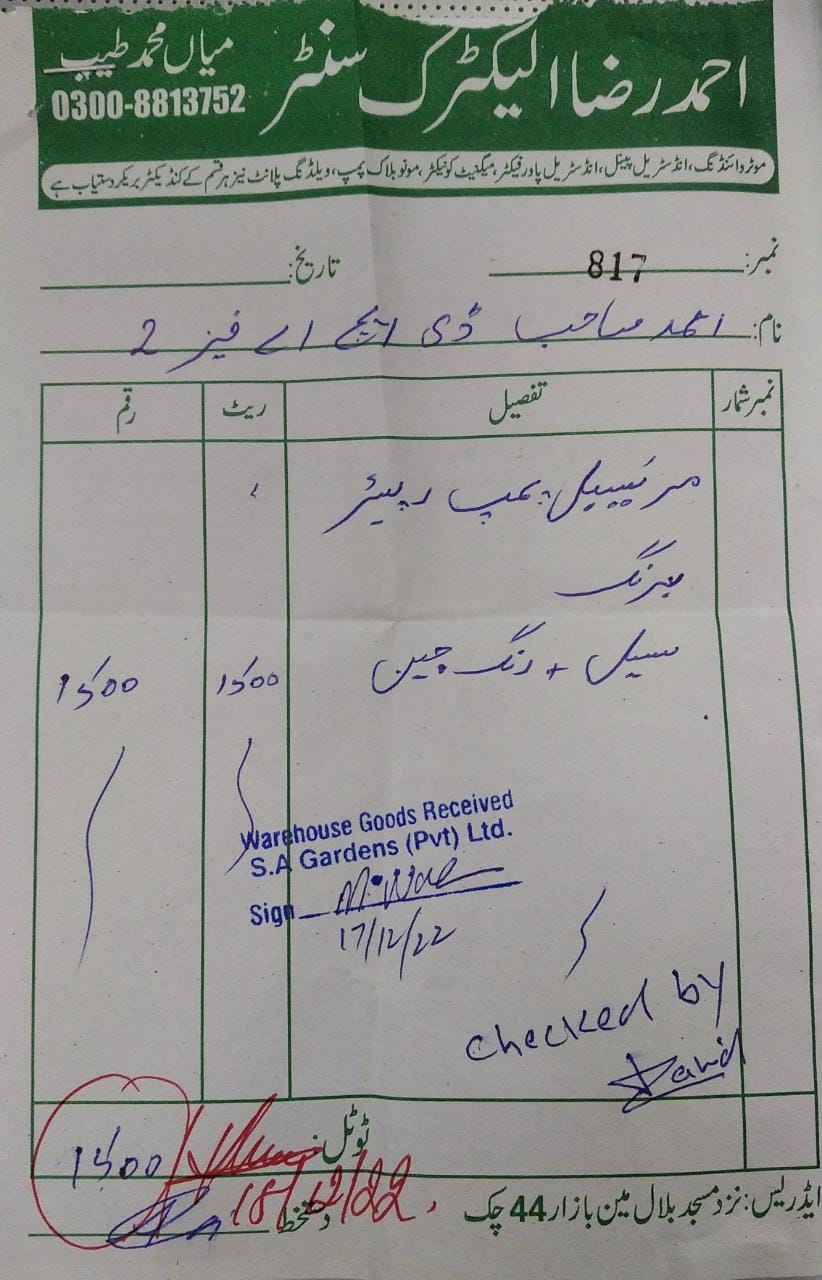 احمد رضا الیکٹرک سنٹر
میاں محمد طیب
0300-8813752
موٹر وائنڈنگ، انڈسٹریل پینل، انڈسٹریل پاور فیکٹر، میگنیٹ کونیکٹر، مونو بلاک پمپ، ویلڈنگ پلانٹ نیز ہر قسم کے کنڈیکٹر بریکر دستیاب ہے
نمبر: 817 تاریخ:
نام: احمد صاحب ڈی ایچ اے فیز 2
نمبر شمار تفصیل ریٹ رقم
پمپ رپیئر
بیرنگ
سیل + رنگ چین 1500 1500
Warehouse Goods Received
S.A Gardens (Pvt) Ltd.
Sign
17/12/22
checked by
ٹوٹل: 1500
دستخط
18/12/22
ایڈریس: نزد مسجد بلال مین بازار 44 چک